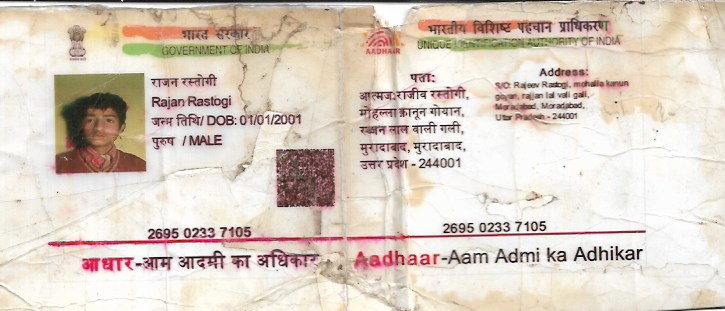 भारत सरकार
GOVERNMENT OF INDIA
राजन रस्तोगी
Rajan Rastogi
जन्म तिथि/ DOB: 01/01/2001
पुरुष / MALE
2695 0233 7105
आधार-आम आदमी का अधिकार
AADHAAR
भारतीय विशिष्ट पहचान प्राधिकरण
UNIQUE IDENTIFICATION AUTHORITY OF INDIA
पता:
आत्मज:राजीव रस्तोगी,
मोहल्ला क़ानून गोयान,
रज्जन लाल वाली गली,
मुरादाबाद, मुरादाबाद,
उत्तर प्रदेश - 244001
Address:
S/O: Rajeev Rastogi, mohalla kanun
rajjan lal vali gali,
Moradabad, Moradabad,
Uttar Pradesh - 244001
2695 0233 7105
Aadhaar-Aam Admi ka Adhikar